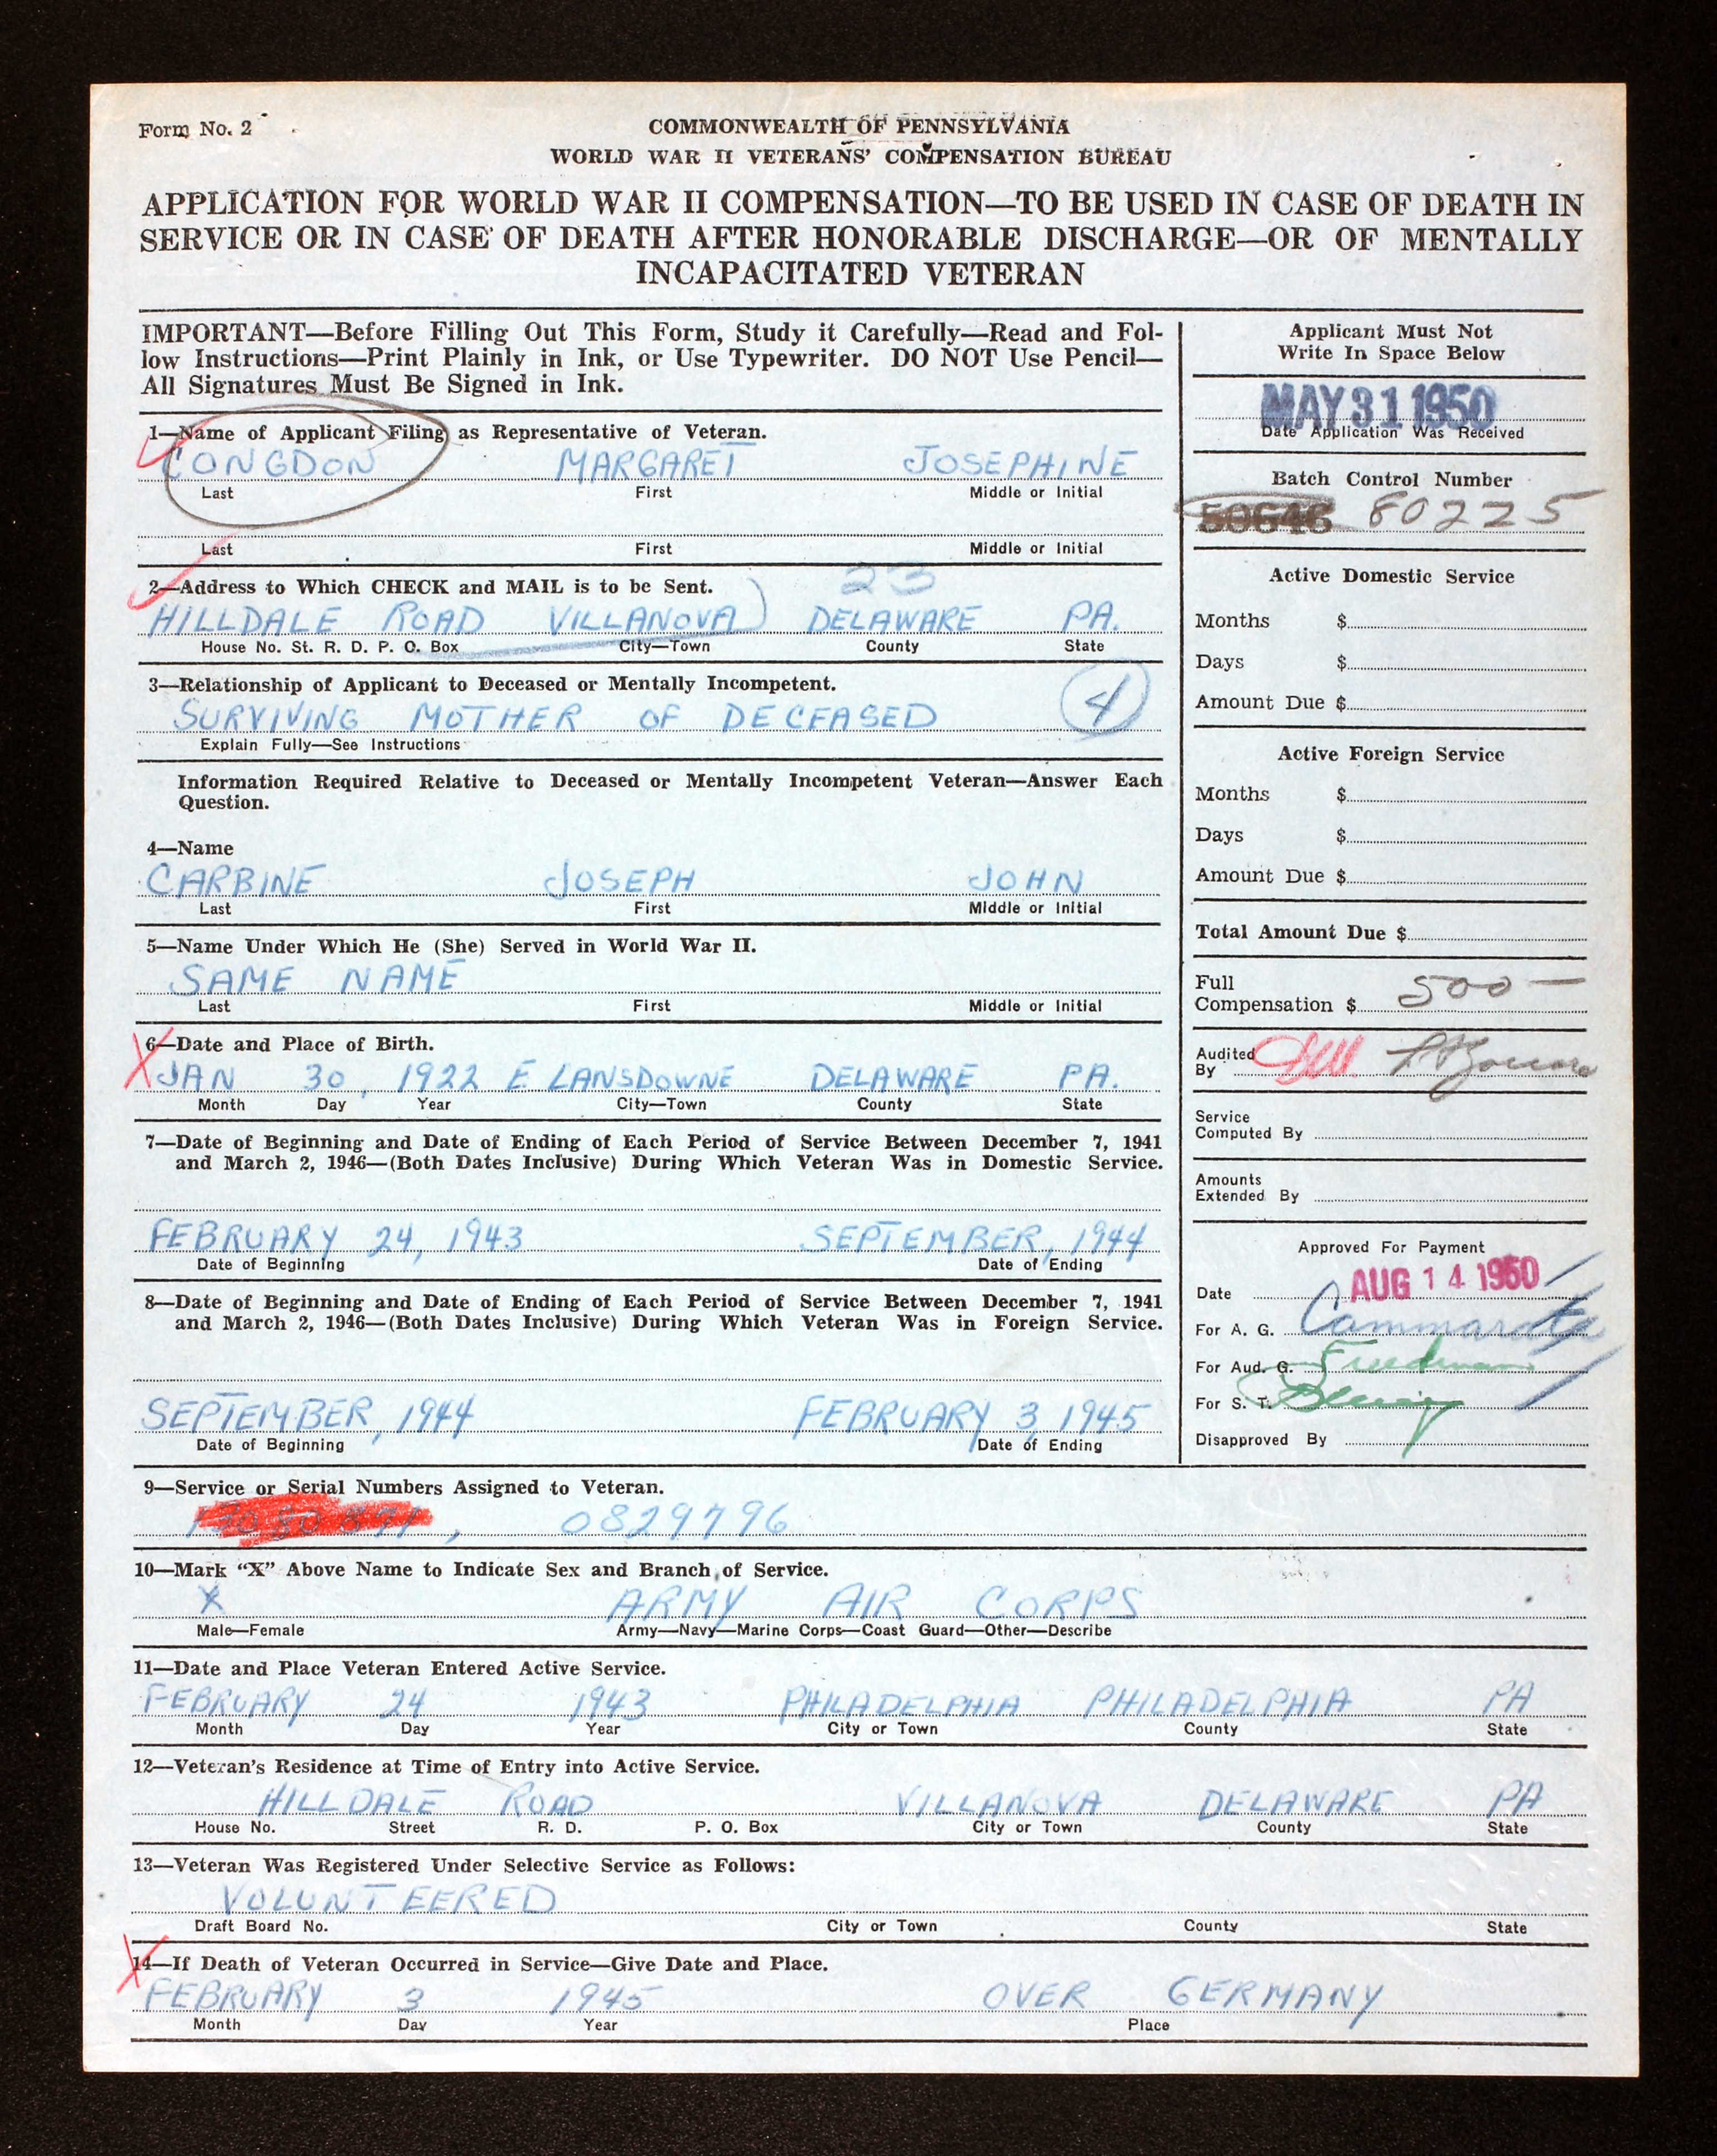 Form No. 2
COMMONWEALTH OF PENNSYLVANIA
WORLD WAR II VETERANS' COMPENSATION BUREAU
APPLICATION FOR WORLD WAR II COMPENSATION—TO BE USED IN CASE OF DEATH IN
SERVICE OR IN CASE OF DEATH AFTER HONORABLE DISCHARGE—OR OF MENTALLY
INCAPACITATED VETERAN
IMPORTANT—Before Filling Out This Form, Study it Carefully—Read and Fol-
low Instructions—Print Plainly in Ink, or Use Typewriter. DO NOT Use Pencil—
All Signatures Must Be Signed in Ink.
1—Name of Applicant Filing as Representative of Veteran.
CONGDON MARGARET JOSEPHINE
Last First Middle or Initial
Last First Middle or Initial
2—Address to Which CHECK and MAIL is to be Sent. 23
HILLDALE ROAD VILLANOVA DELAWARE PA.
House No. St. R. D. P. O. Box City—Town County State
3—Relationship of Applicant to Deceased or Mentally Incompetent.
SURVIVING MOTHER OF DECEASED 4
Explain Fully—See Instructions
Information Required Relative to Deceased or Mentally Incompetent Veteran—Answer Each
Question.
4—Name
CARBINE JOSEPH JOHN
Last First Middle or Initial
5—Name Under Which He (She) Served in World War II.
SAME NAME
Last First Middle or Initial
6—Date and Place of Birth.
JAN 30, 1922 E LANSDOWNE DELAWARE PA.
Month Day Year City—Town County State
7—Date of Beginning and Date of Ending of Each Period of Service Between December 7, 1941
and March 2, 1946—(Both Dates Inclusive) During Which Veteran Was in Domestic Service.
FEBRUARY 24, 1943 SEPTEMBER, 1944
Date of Beginning Date of Ending
8—Date of Beginning and Date of Ending of Each Period of Service Between December 7, 1941
and March 2, 1946—(Both Dates Inclusive) During Which Veteran Was in Foreign Service.
SEPTEMBER, 1944 FEBRUARY 3, 1945
Date of Beginning Date of Ending
Applicant Must Not
Write In Space Below
MAY 31 1950
Date Application Was Received
Batch Control Number
50646 80225
Active Domestic Service
Months $
Days $
Amount Due $
Active Foreign Service
Months $
Days $
Amount Due $
Total Amount Due $
Full
Compensation $ 500—
Audited
By
Service
Computed By
Amounts
Extended By
Approved For Payment
Date AUG 14 1950
For A. G. Cammarota
For Aud. G. Friedman
For S. T.
Disapproved By
9—Service or Serial Numbers Assigned to Veteran.
, 0829796
10—Mark "X" Above Name to Indicate Sex and Branch of Service.
X ARMY AIR CORPS
Male—Female Army—Navy—Marine Corps—Coast Guard—Other—Describe
11—Date and Place Veteran Entered Active Service.
FEBRUARY 24 1943 PHILADELPHIA PHILADELPHIA PA
Month Day Year City or Town County State
12—Veteran's Residence at Time of Entry into Active Service.
HILLDALE ROAD VILLANOVA DELAWARE PA
House No. Street R. D. P. O. Box City or Town County State
13—Veteran Was Registered Under Selective Service as Follows:
VOLUNTEERED
Draft Board No. City or Town County State
14—If Death of Veteran Occurred in Service—Give Date and Place.
FEBRUARY 3 1945 OVER GERMANY
Month Day Year Place